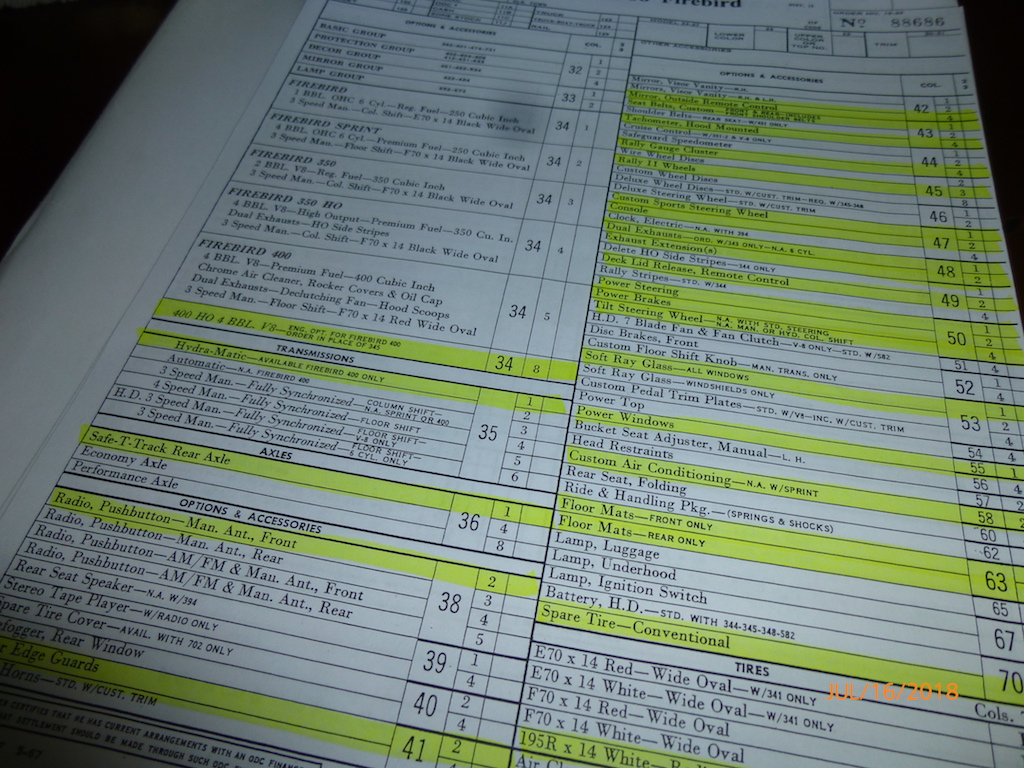 Firebird
Nº 88686
LOWER COLOR
UPPER COLOR OR TOP NO.
TRIM
OTHER ACCESSORIES
OPTIONS & ACCESSORIES
COL.
BASIC GROUP
PROTECTION GROUP
DECOR GROUP
MIRROR GROUP
LAMP GROUP
32
1
2
4
33
1
2
FIREBIRD
1 BBL. OHC 6 Cyl.—Reg. Fuel—250 Cubic Inch
3 Speed Man.—Col. Shift—E70 x 14 Black Wide Oval
34 1
FIREBIRD SPRINT
4 BBL. OHC 6 Cyl.—Premium Fuel—250 Cubic Inch
3 Speed Man.—Floor Shift—F70 x 14 Black Wide Oval
34 2
FIREBIRD 350
2 BBL. V8—Reg. Fuel—350 Cubic Inch
3 Speed Man.—Col. Shift—F70 x 14 Black Wide Oval
34 3
FIREBIRD 350 HO
4 BBL. V8—High Output—Premium Fuel—350 Cu. In.
Dual Exhausts—HO Side Stripes
3 Speed Man.—Col. Shift—F70 x 14 Black Wide Oval
34 4
FIREBIRD 400
4 BBL. V8—Premium Fuel—400 Cubic Inch
Chrome Air Cleaner, Rocker Covers & Oil Cap
Dual Exhausts—Declutching Fan—Hood Scoops
3 Speed Man.—Floor Shift—F70 x 14 Red Wide Oval
34 5
400 HO 4 BBL. V8—ENG. OPT. FOR FIREBIRD 400 ORDER IN PLACE OF 345
34 8
TRANSMISSIONS
Hydra-Matic—AVAILABLE FIREBIRD 400 ONLY
Automatic—N.A. FIREBIRD 400
3 Speed Man.—Fully Synchronized—COLUMN SHIFT—N.A. SPRINT OR 400
4 Speed Man.—Fully Synchronized—FLOOR SHIFT
H.D. 3 Speed Man.—Fully Synchronized—FLOOR SHIFT—V-8 ONLY
3 Speed Man.—Fully Synchronized—FLOOR SHIFT—6 CYL. ONLY
35
1
2
3
4
5
6
AXLES
Safe-T-Track Rear Axle
Economy Axle
Performance Axle
36
1
4
8
OPTIONS & ACCESSORIES
Radio, Pushbutton—Man. Ant., Front
Radio, Pushbutton—Man. Ant., Rear
Radio, Pushbutton—AM/FM & Man. Ant., Front
Radio, Pushbutton—AM/FM & Man. Ant., Rear
Rear Seat Speaker—N.A. W/394
Stereo Tape Player—W/RADIO ONLY
pare Tire Cover—AVAIL. WITH 702 ONLY
efogger, Rear Window
r Edge Guards
Horns—STD. W/CUST. TRIM
38
2
3
4
5
39
1
4
40
2
4
41
2
OPTIONS & ACCESSORIES
COL.
Mirror, Visor Vanity—R.H.
Mirrors, Visor Vanity—R.H. & L.H.
Mirror, Outside Remote Control
Seat Belts, Custom—FRONT & REAR—INCLUDES FRONT SHOULDER BELTS
Shoulder Belts—REAR SEAT—W/431 ONLY
Tachometer, Hood Mounted
Cruise Control—
Safeguard Speedometer
Rally Gauge Cluster
Wire Wheel Discs
Rally II Wheels
Custom Wheel Discs
Deluxe Wheel Discs—STD. W/CUST. TRIM—REQ. W/345-348
Deluxe Steering Wheel—STD. W/CUST. TRIM
Custom Sports Steering Wheel
Console
Clock, Electric—N.A. WITH 394
Dual Exhausts—ORD. W/343 ONLY—N.A. 6 CYL.
Exhaust Extension(s)
Delete HO Side Stripes—344 ONLY
Deck Lid Release, Remote Control
Rally Stripes—STD. W/344
Power Steering
Power Brakes
Tilt Steering Wheel—N.A. WITH STD. STEERING N.A. MAN. OR HYD. COL. SHIFT
H.D. 7 Blade Fan & Fan Clutch—V-8 ONLY—STD. W/582
Disc Brakes, Front
Custom Floor Shift Knob—MAN. TRANS. ONLY
Soft Ray Glass—ALL WINDOWS
Soft Ray Glass—WINDSHIELDS ONLY
Custom Pedal Trim Plates—STD. W/V8—INC. W/CUST. TRIM
Power Top
Power Windows
Bucket Seat Adjuster, Manual—L. H.
Head Restraints
Custom Air Conditioning—N.A. W/SPRINT
Rear Seat, Folding
Ride & Handling Pkg.—(SPRINGS & SHOCKS)
Floor Mats—FRONT ONLY
Floor Mats—REAR ONLY
Lamp, Luggage
Lamp, Underhood
Lamp, Ignition Switch
Battery, H.D.—STD. WITH 344-345-348-582
Spare Tire—Conventional
42
43
44
45
46
47
48
49
50
51
52
53
54
55
56
57
58
60
62
63
65
67
70
TIRES
Cols.
E70 x 14 Red—Wide Oval—W/341 ONLY
E70 x 14 White—Wide Oval—W/341 ONLY
F70 x 14 Red—Wide Oval
F70 x 14 White—Wide Oval
195R x 14 White—
JUL/16/2018